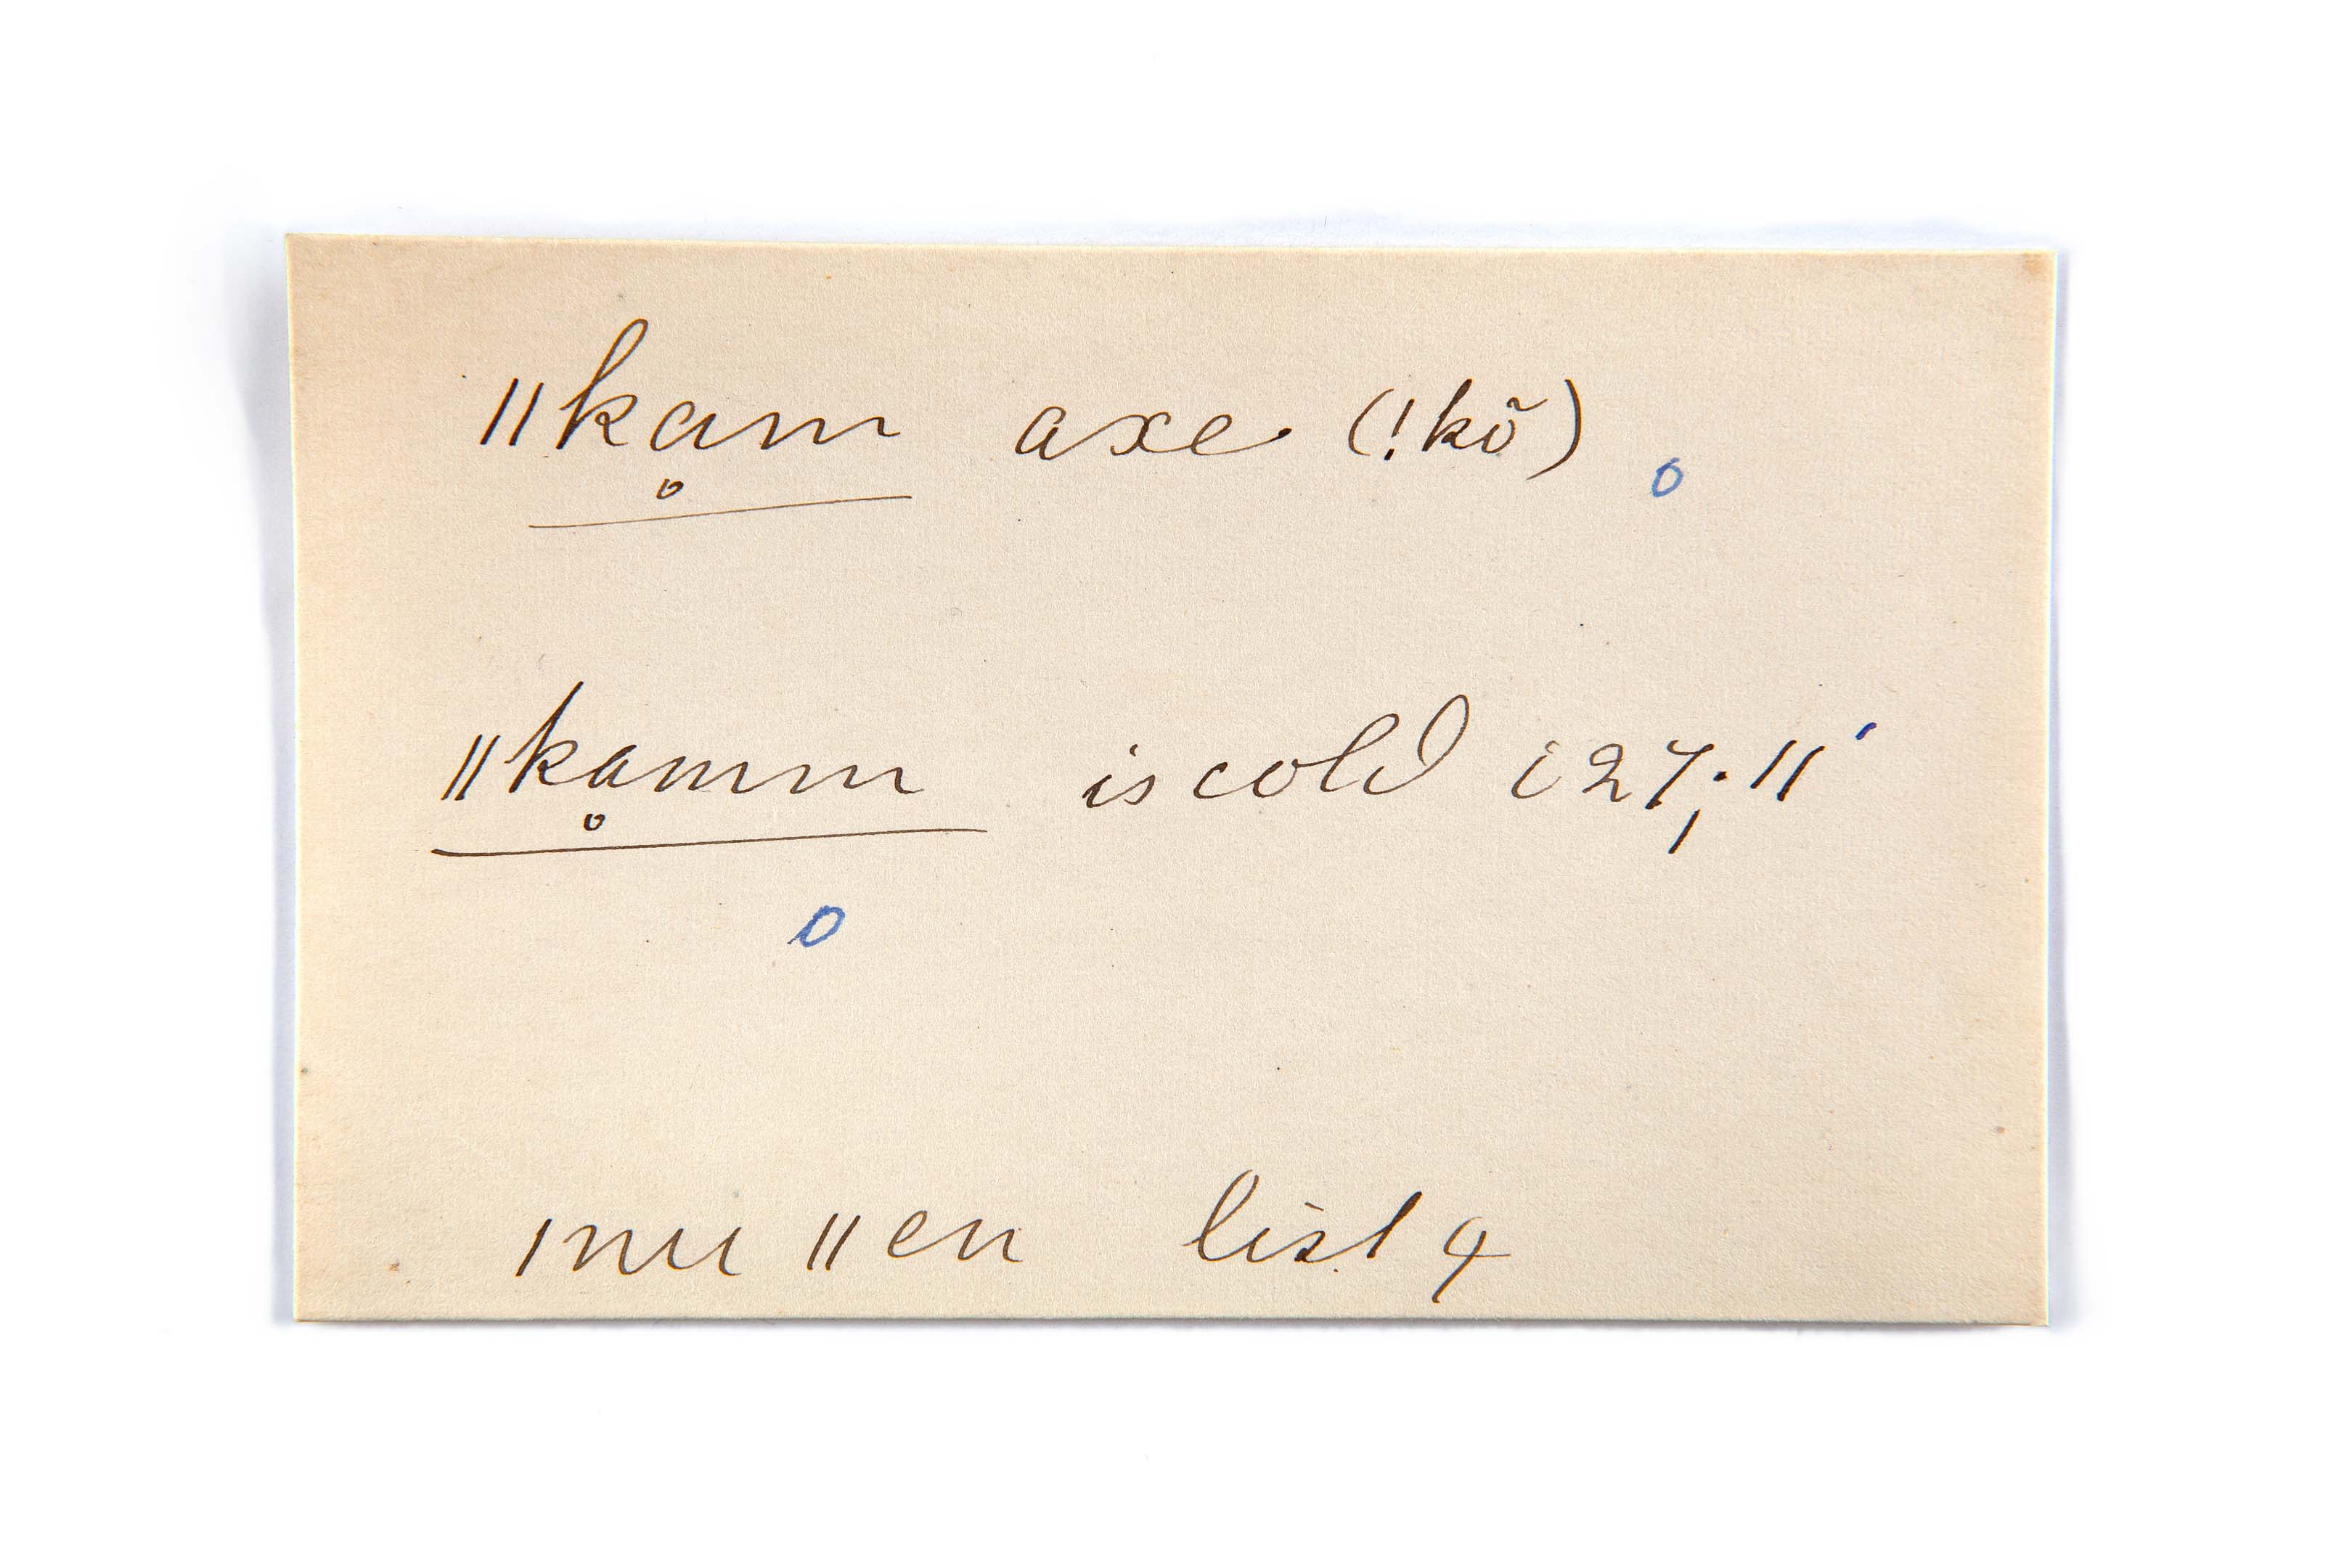 ǁkḁm axe (!kõ) o
ǁkḁmm is cold i 27; 11'
o
ǀnu ǁen list 9